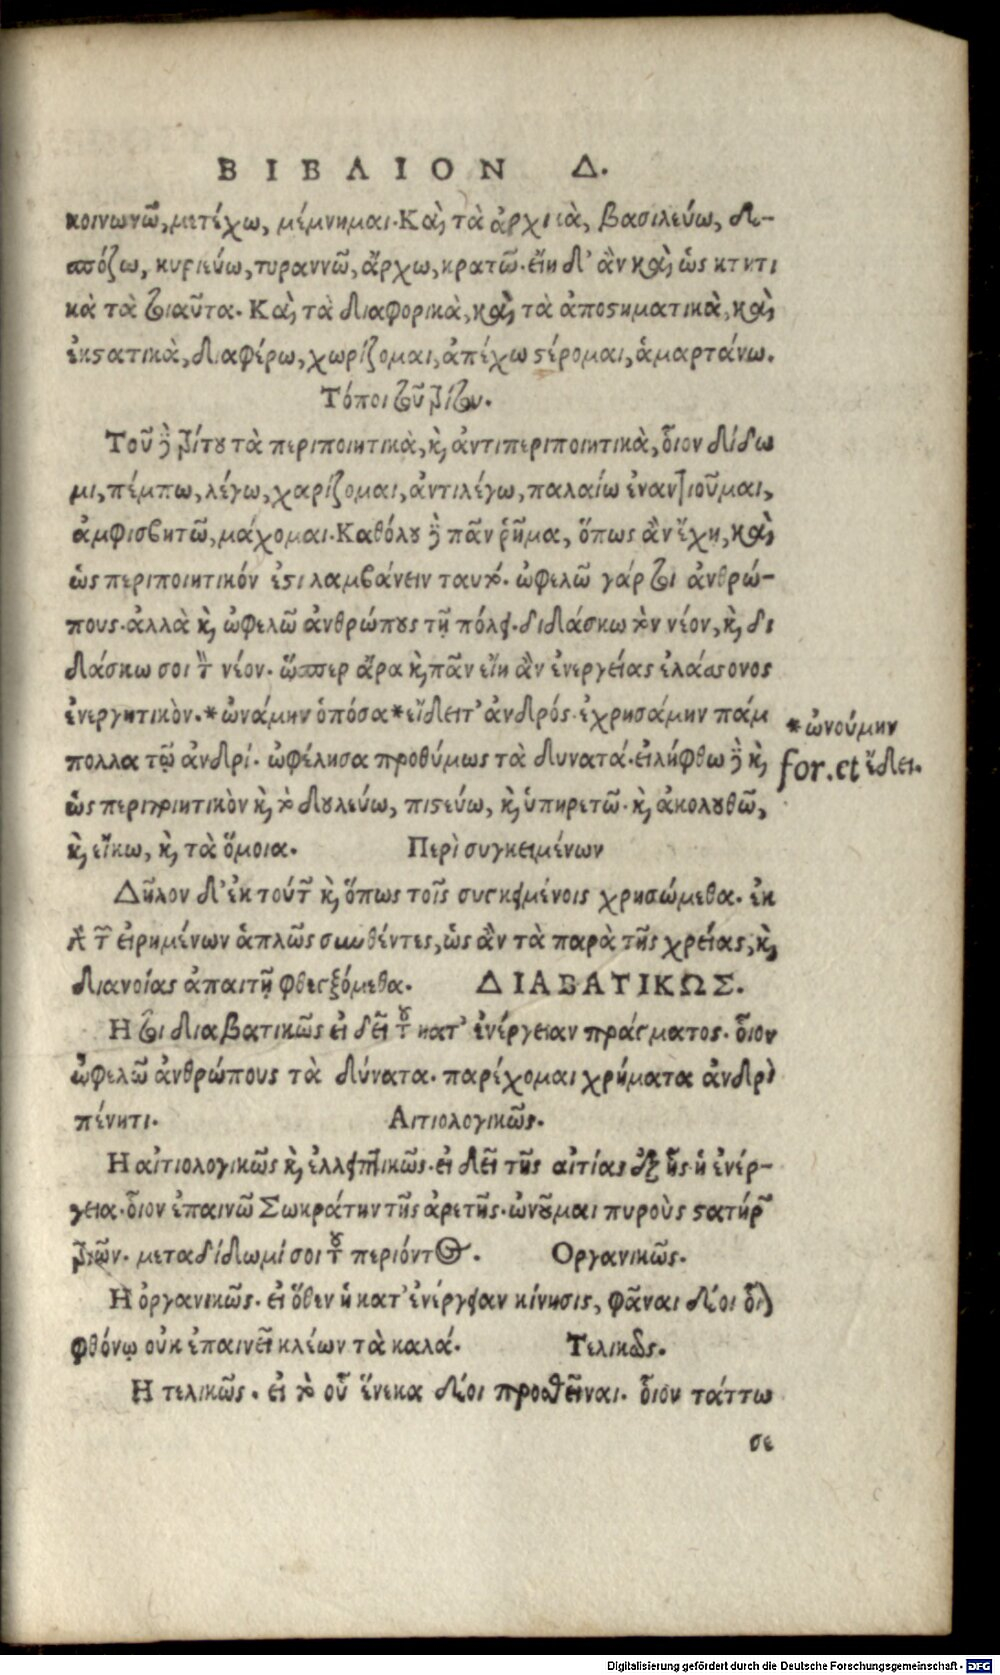 ΒΙΒΛΙΟΝ Δ.
κοινωνῶ, μετέχω, μέμνημαι. Καὶ τὰ ἀρχικὰ, βασιλεύω, δε-
σπόζω, κυριεύω, τυραννῶ, ἄρχω, κρατῶ. εἴη δ' ἂν καὶ ὡς κτητι
κὰ τὰ τοιαῦτα. Καὶ τὰ διαφορικὰ, καὶ τὰ ἀποστηματικὰ, καὶ
ἐκστατικὰ, διαφέρω, χωρίζομαι, ἀπέχω στέρομαι, ἁμαρτάνω.
Τόποι τοῦ τρίτου.
Τοῦ δὲ τρίτου τὰ περιποιητικὰ, καὶ ἀντιπεριποιητικὰ, οἷον δίδω
μι, πέμπω, λέγω, χαρίζομαι, ἀντιλέγω, παλαίω ἐναντιοῦμαι,
ἀμφισβητῶ, μάχομαι. Καθόλου δὲ πᾶν ῥῆμα, ὅπως ἂν ἔχῃ, καὶ
ὡς περιποιητικόν ἐστι λαμβάνειν ταυτό. ὠφελῶ γάρ τοι ἀνθρώ-
πους. ἀλλὰ καὶ ὠφελῶ ἀνθρώπους τῇ πόλει. διδάσκω τὸν νέον, καὶ δι
δάσκω σοι τὸν νέον. ὥσπερ ἄρα καὶ πᾶν εἴη ἂν ἐνεργείας ἐλάσσονος
ἐνεργητικὸν. *ὠνάμην ὁπόσα *εἴδειτ' ἀνδρός. ἐχρησάμην πάμ
πολλα τῷ ἀνδρί. ὠφέλησα προθύμως τὰ δυνατά. εἰλήφθω δὲ καὶ
ὡς περιποιητικὸν καὶ τὸ δουλεύω, πιστεύω, καὶ ὑπηρετῶ. καὶ ἀκολουθῶ,
καὶ εἴκω, καὶ τὰ ὅμοια. Περὶ συγκειμένων
Δῆλον δ' ἐκ τούτου καὶ ὅπως τοῖς συγκειμένοις χρησώμεθα. ἐκ
τῶν εἰρημένων ἁπλῶς συνθέντες, ὡς ἂν τὰ παρὰ τῆς χρείας, καὶ
διανοίας ἀπαιτῇ φθεγξόμεθα. ΔΙΑΒΑΤΙΚΩΣ.
Η τοι διαβατικῶς εἰ δεῖ τοῦ κατ' ἐνέργειαν πράγματος. οἷον
ὠφελῶ ἀνθρώπους τὰ δύνατα. παρέχομαι χρήματα ἀνδρὶ
πένητι. Αιτιολογικῶς.
Η αἰτιολογικῶς καὶ ἐλλειπτικῶς. εἰ δεῖ τῆς αἰτίας ἐξ ἧς ἡ ἐνέρ-
γεια. οἷον ἐπαινῶ Σωκράτην τῆς ἀρετῆς. ὠνοῦμαι πυροὺς στατήρων
τριῶν. μεταδίδωμί σοι τοῦ περιόντος. Οργανικῶς.
Η ὀργανικῶς. εἰ ὅθεν ἡ κατ' ἐνέργειαν κίνησις, φᾶναι δέοι οἷον
φθόνῳ οὐκ ἐπαινεῖ κλέων τὰ καλά. Τελικῶς.
Η τελικῶς. εἰ τὸ οὗ ἕνεκα δέοι προσθεῖναι. οἷον τάττω
σε
*ὠνούμην
for. et ἔδει.
Digitalisierung gefördert durch die Deutsche Forschungsgemeinschaft - DFG